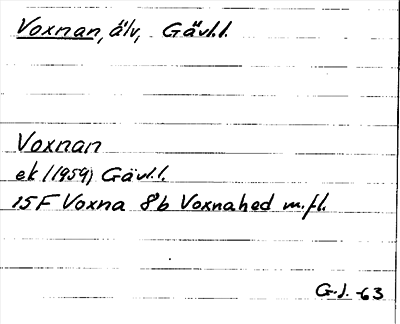 Voxnan, älv, Gävl.l.
Voxnan
ek (1959) Gävl.l.
15F Voxna 8b Voxnahed m.fl.
G.J. -63